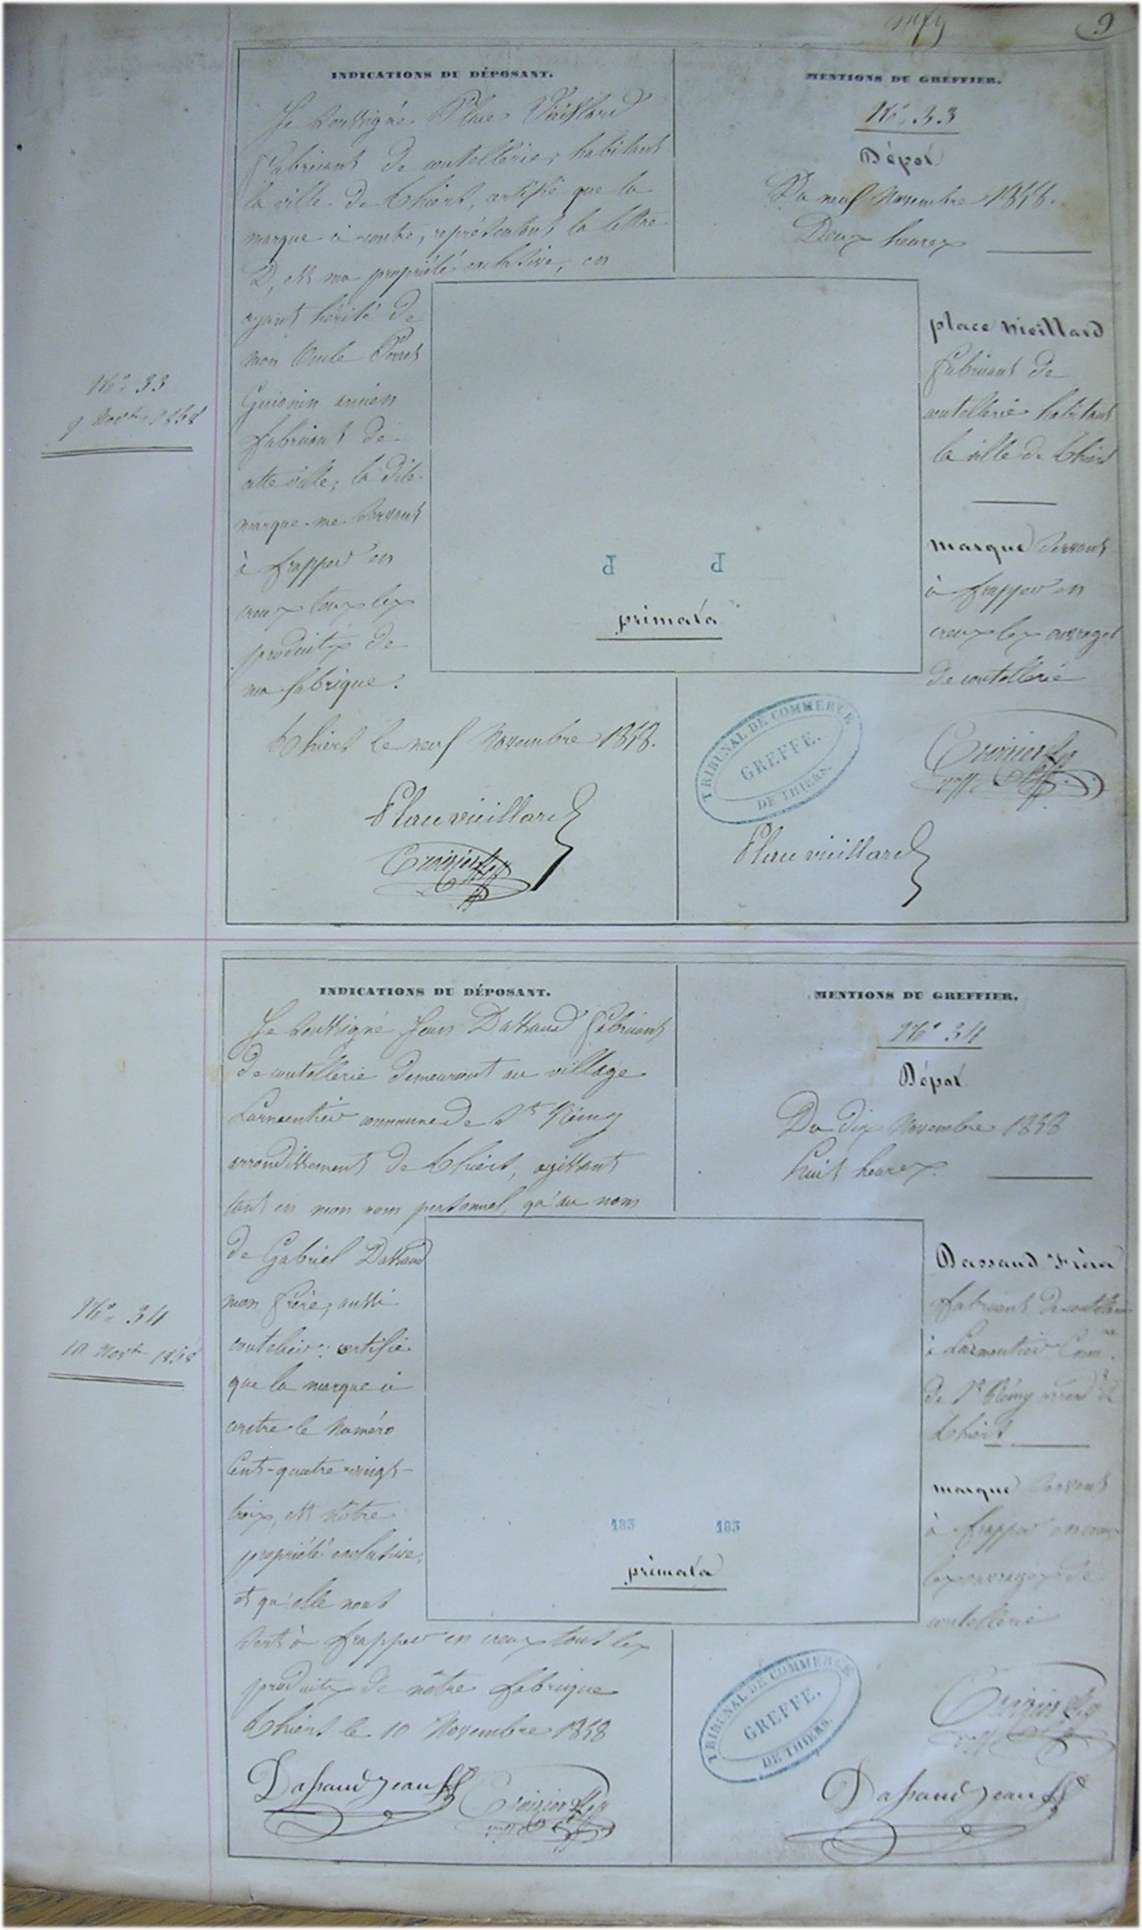 9
INDICATIONS DU DÉPOSANT.
Je soussigné Place Vieillard
fabricant de coutellerie, habitant
la ville de Thiers, certifie que la
marque ci contre, représentant la lettre
D, est ma propriété exclusive, en
ayant hérité de
mon Oncle
Guionin ancien
fabricant de
cette ville, la dite
marque me servant
à frapper en
creux tous les
produits de
ma fabrique.
Thiers le neuf Novembre 1858.
Place vieillard
Croizier
MENTIONS DU GREFFIER.
N° 33
Dépôt
Du neuf Novembre 1858.
Deux heures
place vieillard
fabricant de
coutellerie habitant
la ville de Thiers
marque servant
à frapper en
creux les ouvrages
de coutellerie
Croizier
Place vieillard
N° 33
9 Novbre 1858
primata
TRIBUNAL DE COMMERCE
GREFFE.
DE THIERS.
INDICATIONS DU DÉPOSANT.
Je soussigné Jean Dassaud fabricant
de coutellerie demeurant au village
Larmentier commune de St Rémy
arrondissement de Thiers, agissant
tant en mon nom personnel, qu'au nom
de Gabriel Dassaud
mon frère, aussi
coutelier; certifie
que la marque ci
contre le Numéro
Cent-quatre-vingt-
trois, est nôtre
propriété exclusive,
et qu'elle nous
sert à frapper en creux tous les
produits de nôtre fabrique
Thiers le 10 Novembre 1858
Dassaud Jean
Croizier
MENTIONS DU GREFFIER.
N° 34
Dépôt
Du dix Novembre 1858
huit heures.
Dassaud Frères
fabricants de coutellerie
à Larmentier Comne
de St Rémy arrondt de
Thiers
marque servant
à frapper en creux
les ouvrages de
coutellerie
Croizier
Dassaud Jean
N° 34
10 Novbre 1858
183 183
primata
TRIBUNAL DE COMMERCE
GREFFE.
DE THIERS.